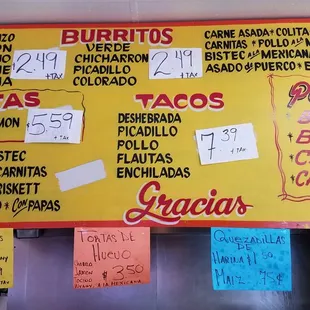 BURRITOS
VERDE
CHICHARRON
PICADILLO
COLORADO
2.49
+ TAX
2.49
+ TAX
CARNE ASADA • COLITA
CARNITAS • POLLO A LA M
BISTEC A LA MEXICANA
ASADO DE PUERCO •
TAS
5.59
+ TAX
CARNITAS
BRISKETT
CON PAPAS
TACOS
DESHEBRADA
PICADILLO
POLLO
FLAUTAS
ENCHILADAS
7.39
+ TAX
Gracias
TORTAS DE
HUEVO
$3.50
A LA MEXICANA
QUEZADILLAS
DE
HARINA
MAIZ 75¢